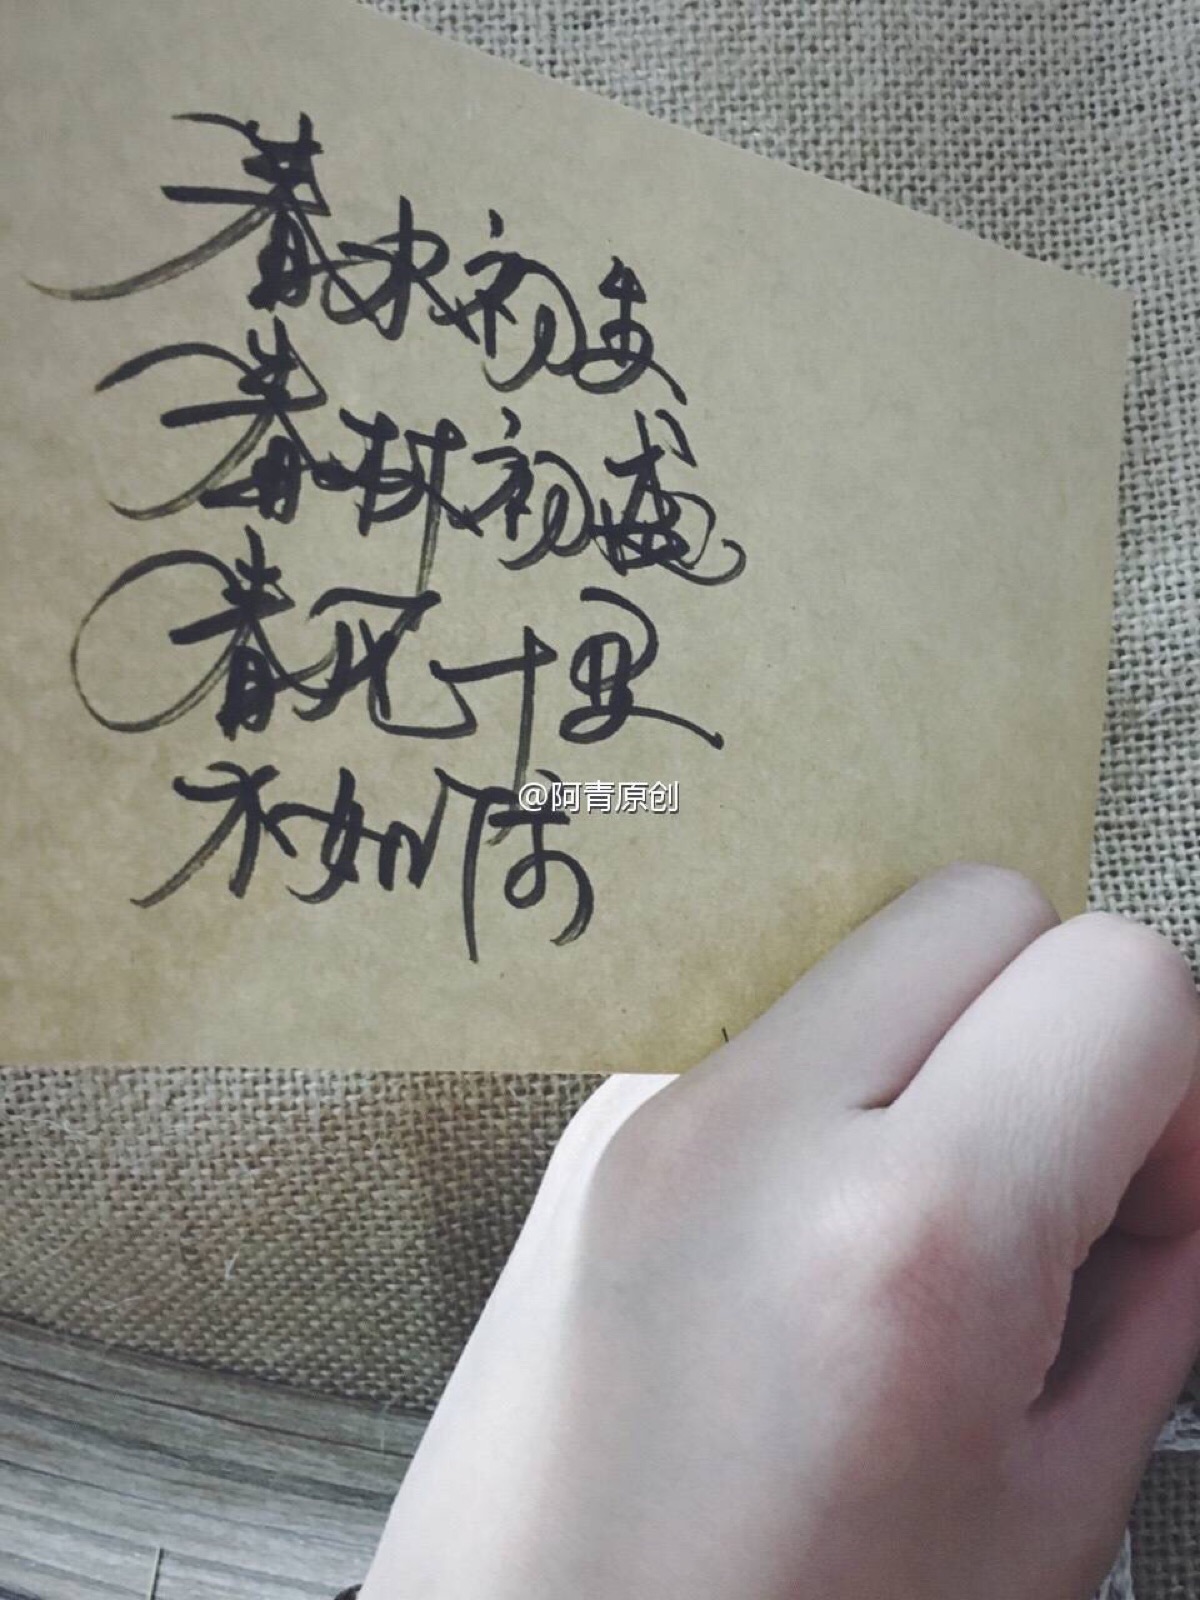 春水初生
春林初盛
春风十里
不如你
@阿青原创